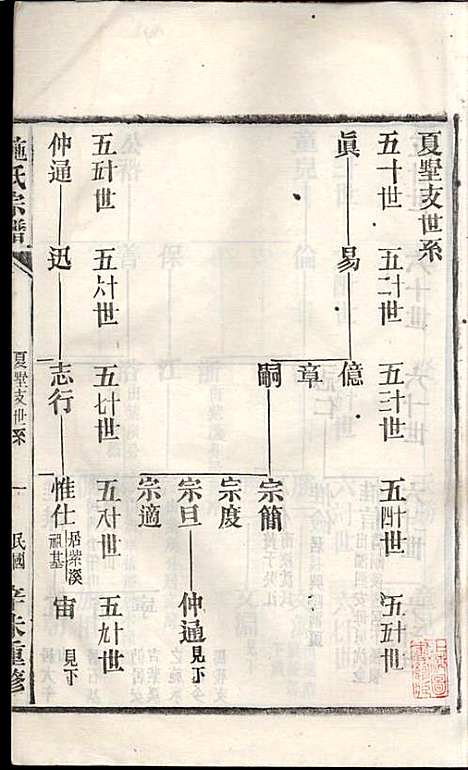 夏墅支世系
五十世 五十一世 五十二世 五十三世 五十四世 五十五世
眞一 易 億
章
嗣 宗簡
宗度
宗旦 仲通 見下
宗適
五十五世 五十六世 五十七世 五十八世 五十九世
仲通 迅 志行 惟仕 居紫溪祖基 宙 見下
施氏宗譜
夏墅支世系
一
民國
辛未重修